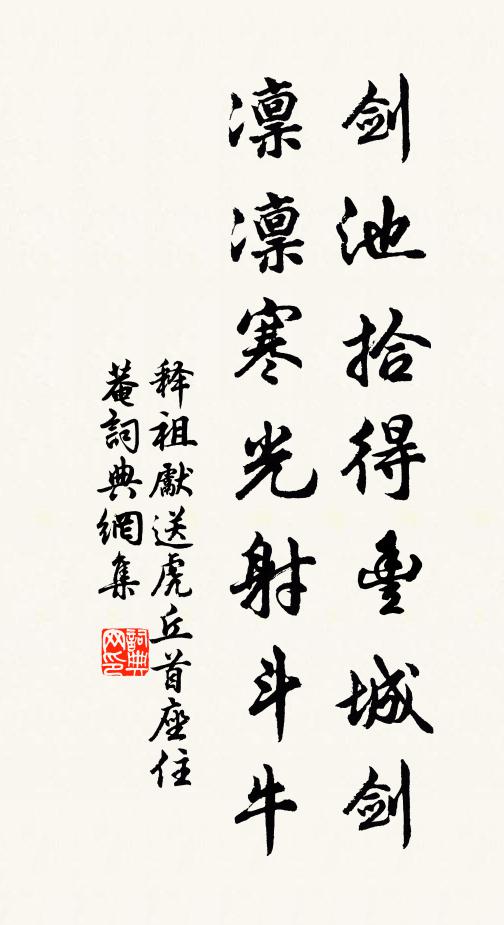 剑池拾得豊城剑
凛凛寒光射斗牛
释祖獻送虎丘首座住
菴詞典網集
詞典网印